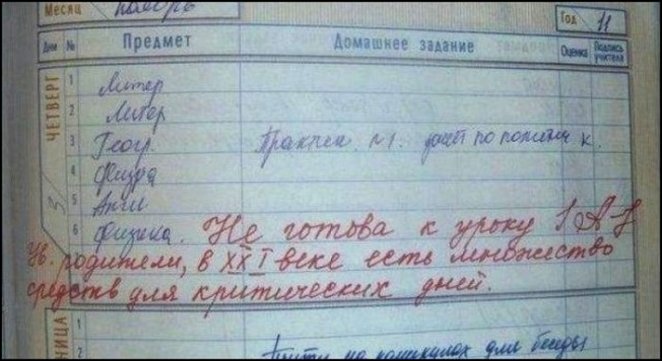 Месяц ноябрь Год 11
Дни № Предмет Домашнее задание Оценка Подпись учителя
ЧЕТВЕРГ
3
1 Литер
2 Литер
3 Геогр. Практич. №1.
4 Физра
5 Англ
6 Физика. Не готова к уроку
Ув. родители, в XXI веке есть множество
средств для критических дней.
1
2
для беседы